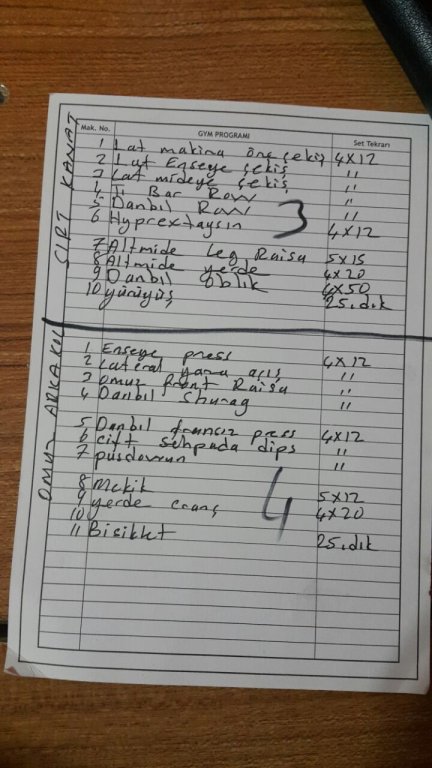 Mak. No. GYM PROGRAMI Set Tekrarı
SIRT KANAT
1 Lat makina öne çekiş 4x12
2 Lat Enseye çekiş "
3 Lat mideye çekiş "
4 T Bar Row "
5 Danbıl Row "
6 Hyprextaysın 4x12
3
7 Altmide leg Raisu 5x15
8 Altmide yerde 4x20
9 Danbıl oblik 4x50
10 yürüyüş 25.dık
OMUZ ARKA KOL
1 Enseye press 4x12
2 Lateral yana açış "
3 omuz front Raisu "
4 Danbıl Shurag "
5 Danbıl fransız press 4x12
6 çift sehpada dips "
7 pusdovrun "
4
8 Mekik 5x12
9 yerde cranş 4x20
10
11 Bisiklet 25.dık